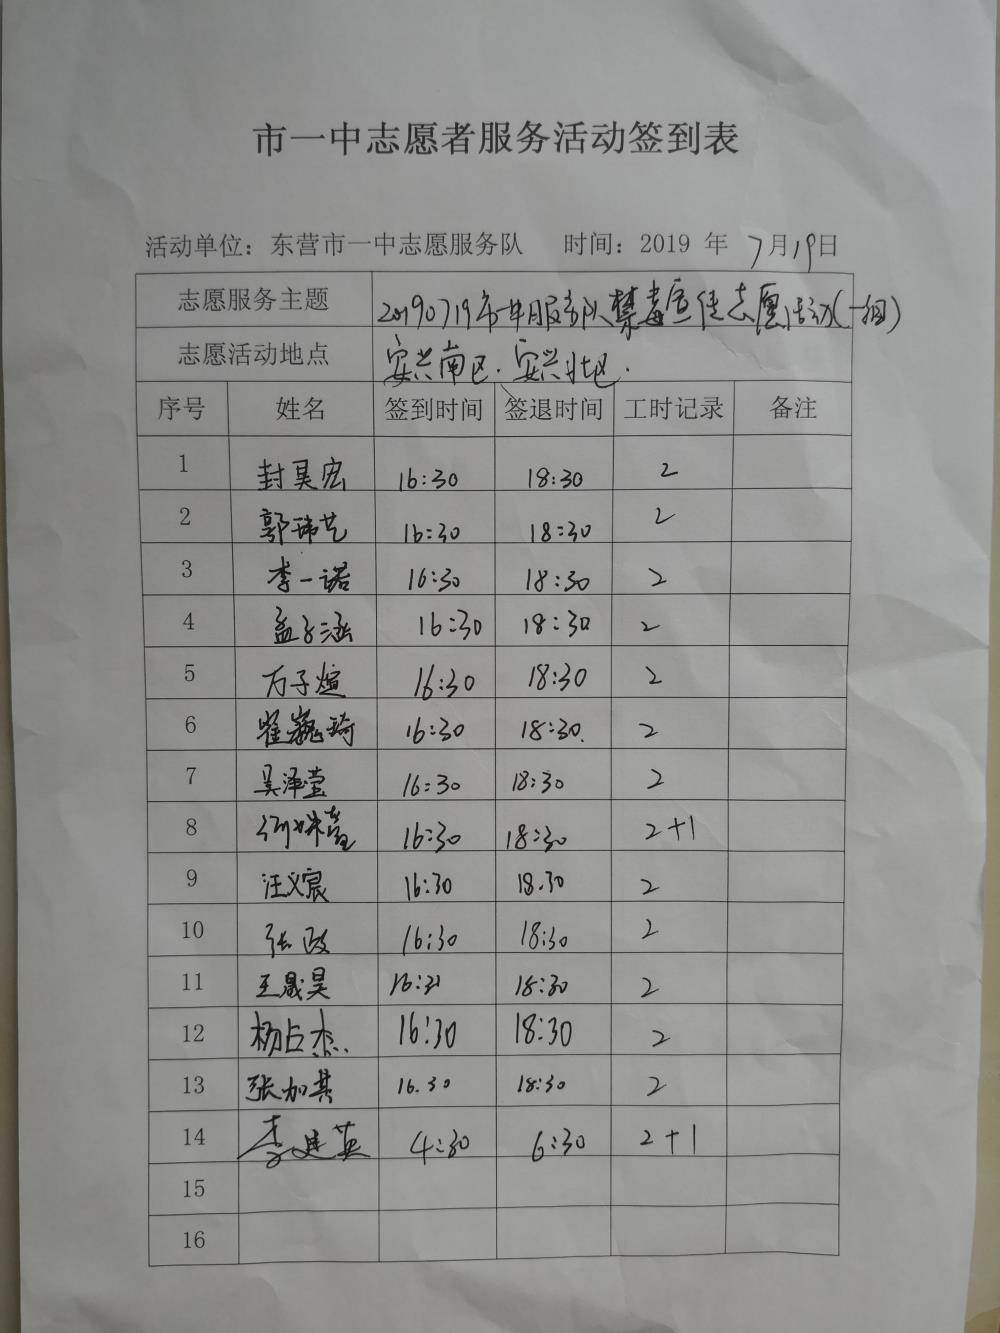 市一中志愿者服务活动签到表
活动单位：东营市一中志愿服务队 时间：2019 年 7月19日
志愿服务主题 20190719市一中服务队禁毒宣传志愿活动(一组)
志愿活动地点 安兴南区.安兴北区.
序号 姓名 签到时间 签退时间 工时记录 备注
1 封昊宏 16:30 18:30 2
2 郭玮艺 16:30 18:30 2
3 李一诺 16:30 18:30 2
4 孟子涵 16:30 18:30 2
5 万子煊 16:30 18:30 2
6 崔巍琦 16:30 18:30. 2
7 吴泽莹 16:30 18:30 2
8 16:30 18:30 2+1
9 汪义宸 16:30 18.30 2
10 张政 16:30 18:30 2
11 王晟昊 16:31 18:30 2
12 杨占杰 16:30 18:30 2
13 张加其 16.30 18:30 2
14 李建英 4:30 6:30 2+1
15
16